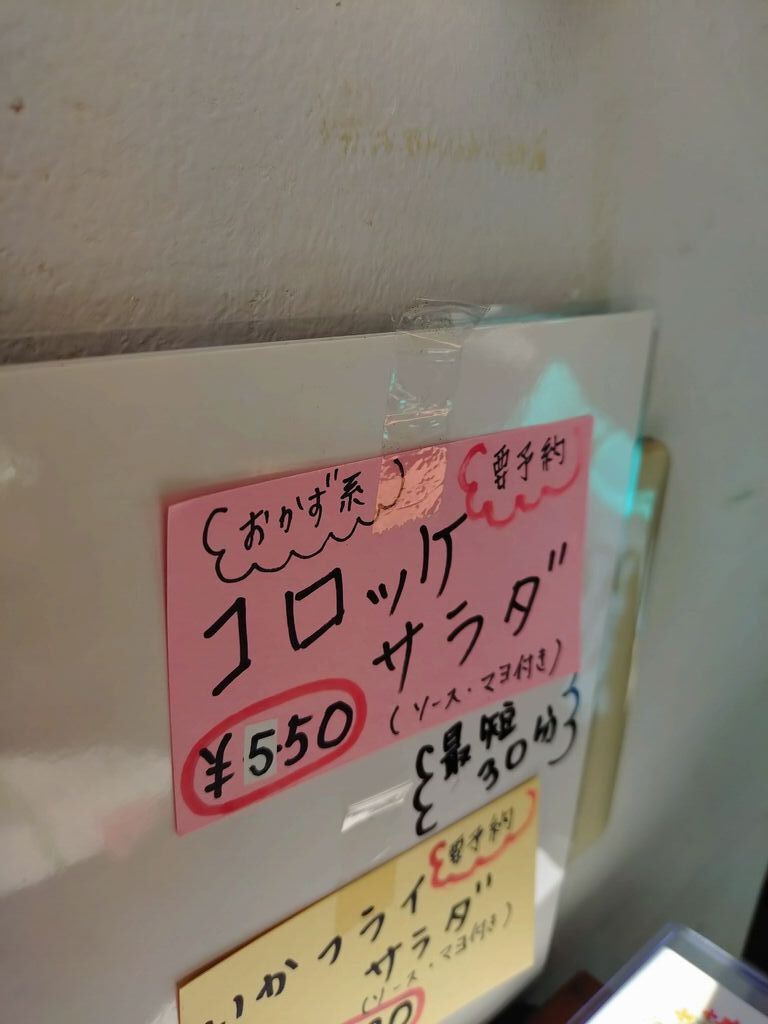 おかず系
要予約
コロッケ
サラダ
(ソース・マヨ付き)
¥550
最短
30分
要予約
いかフライ
サラダ
(ソース・マヨ付き)